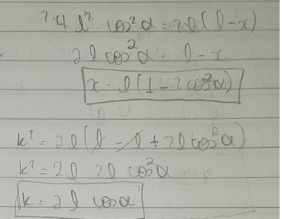 4l² cos²α = 2l(l-x)
2l cos²α = l-x
x = l(1-2cos²α)
k² = 2l(l - l + 2l cos²α)
k² = 2l 2l cos²α
k = 2l cosα